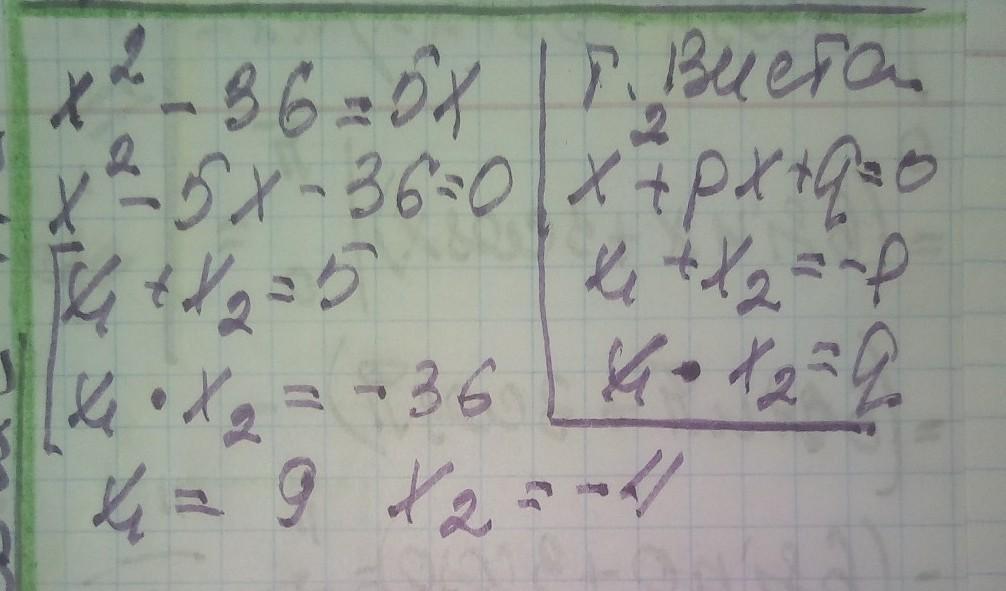 x² - 36 = 5x
x² - 5x - 36 = 0
x₁ + x₂ = 5
x₁ · x₂ = -36
x₁ = 9 x₂ = -4
т. Виета
x² + px + q = 0
x₁ + x₂ = -p
x₁ · x₂ = q